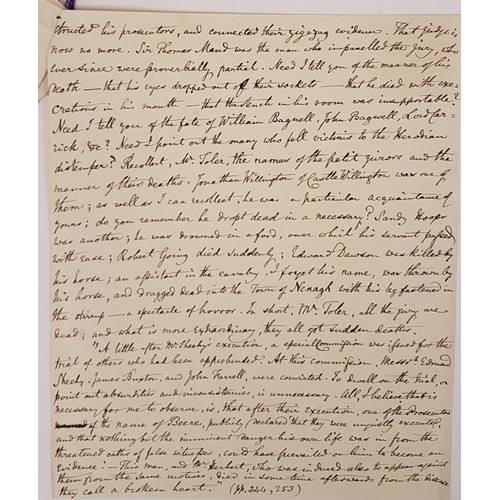 structed his prosecutors, and connected their zigzag evidence. That judge is
now no more. Sir Thomas Maud was the man who impanelled the jury, who
ever since were proverbially partial. Need I tell you of the manner of his
death — that his eyes dropped out of their sockets — that he died with exe-
crations in his mouth — that the stench in his room was insupportable?
Need I tell you of the fate of William Bagnell, John Bagwell, Lord Car-
rick, &c? Need I point out the many who fell victims to the Herodian
distemper? Recollect, Mr. Toler, the names of the petit jurors and the
manner of their deaths. Jonathan Willington of Castle Willington was one of
them; as well as I can recollect, he was a particular acquaintance of
yours; do you remember he dropt dead in a necessary? Sandy Hoops
was another; he was drowned in a ford, over which his servant passed
with ease; Robert Going died suddenly; Edward Dawson was killed by
his horse; an assistant in the cavalry, I forget his name, was thrown by
his horse, and dragged dead into the Town of Nenagh with his leg fastened in
the stirrup — a spectacle of horror. In short, Mr. Toler, all the jury are
dead; and what is more extraordinary, they all got sudden deaths.
"A little after Mr. Sheehy's execution, a special commission was issued for the
trial of others who had been apprehended. At this commission, Messrs. Edmund
Sheehy, James Buxton, and John Farrell, were convicted. To dwell on the trial, or
point out absurdities and inconsistencies, is unnecessary. All, I believe that is
necessary for me to observe, is, that after their execution, one of the prosecutors
of the name of Beere, publicly declared that they were unjustly executed,
and that nothing but the imminent danger his own life was in from the
threatened oaths of false witnesses, could have prevailed on him to become an
evidence! This man, and Mr. Herbert, who was induced also to appear against
them from the same motives, died in some time afterwards from the disease
they call a broken heart." (pp. 244, 253)